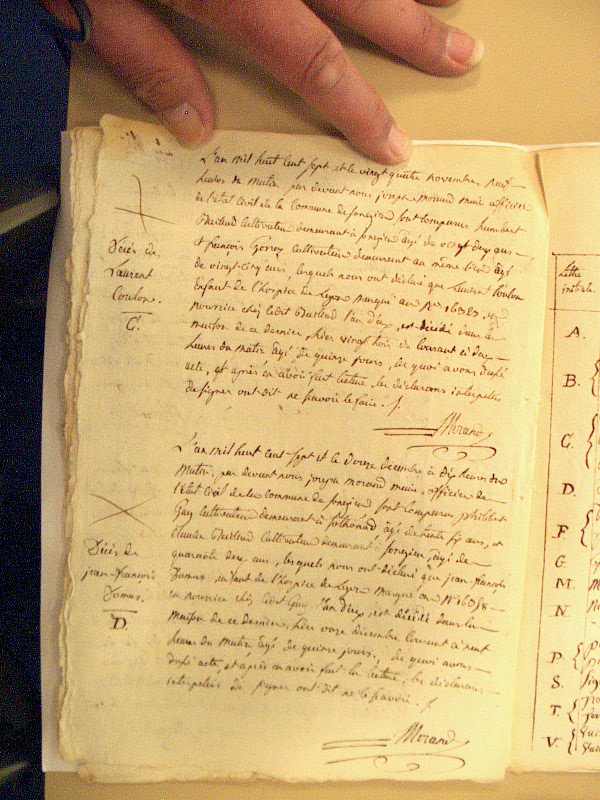 L'an mil huit cent sept et le vingt quatre novembre, neuf
heures du matin, par devant nous joseph morand maire officier
de l'état civil de la Commune de jonzieu sont comparus humbert
Cultivateur demeurant à jonzieu âgé de vingt deux ans
et françois Cultivateur demeurant au même lieu âgé
de vingt cinq ans, lesquels nous ont déclaré que Laurent Coulon
Enfant de l'hospice de Lyon marqué au N° en
nourrice chez ledit l'un d'eux, est décédé dans la
maison de ce dernier, hier vingt trois du Courant à deux
heures du matin âgé de quinze jours, de quoi avons dressé
acte, et après en avoir fait lecture, les déclarans interpellés
de signer ont dit ne savoir le faire.
Morand
Décès de
Laurent
Coulon.
C.
L'an mil huit cent sept et le douze décembre à dix heures du
matin, par devant nous joseph morand maire, officier de
l'état Civil de la Commune de jonzieu sont comparus philibert
Guy Cultivateur demeurant à âgé de trente six ans, et
claude Cultivateur demeurant à jonzieu âgé de
quarante deux ans, lesquels nous ont déclaré que jean-françois
Domus, enfant de l'hospice de Lyon marqué au N° 16058
en nourrice chez ledit Guy l'un d'eux, est décédé dans la
maison de ce dernier, hier onze décembre Courant à neuf
heures du matin âgé de quinze jours, de quoi avons
dressé acte, et après en avoir fait la lecture, les déclarans
interpellés de signer ont dit ne le savoir.
Morand
Décès de
jean-françois
Domus.
D.
Lettre
initiale.
A.
B.
C.
D.
F.
G.
M.
N.
P.
S.
T.
V.